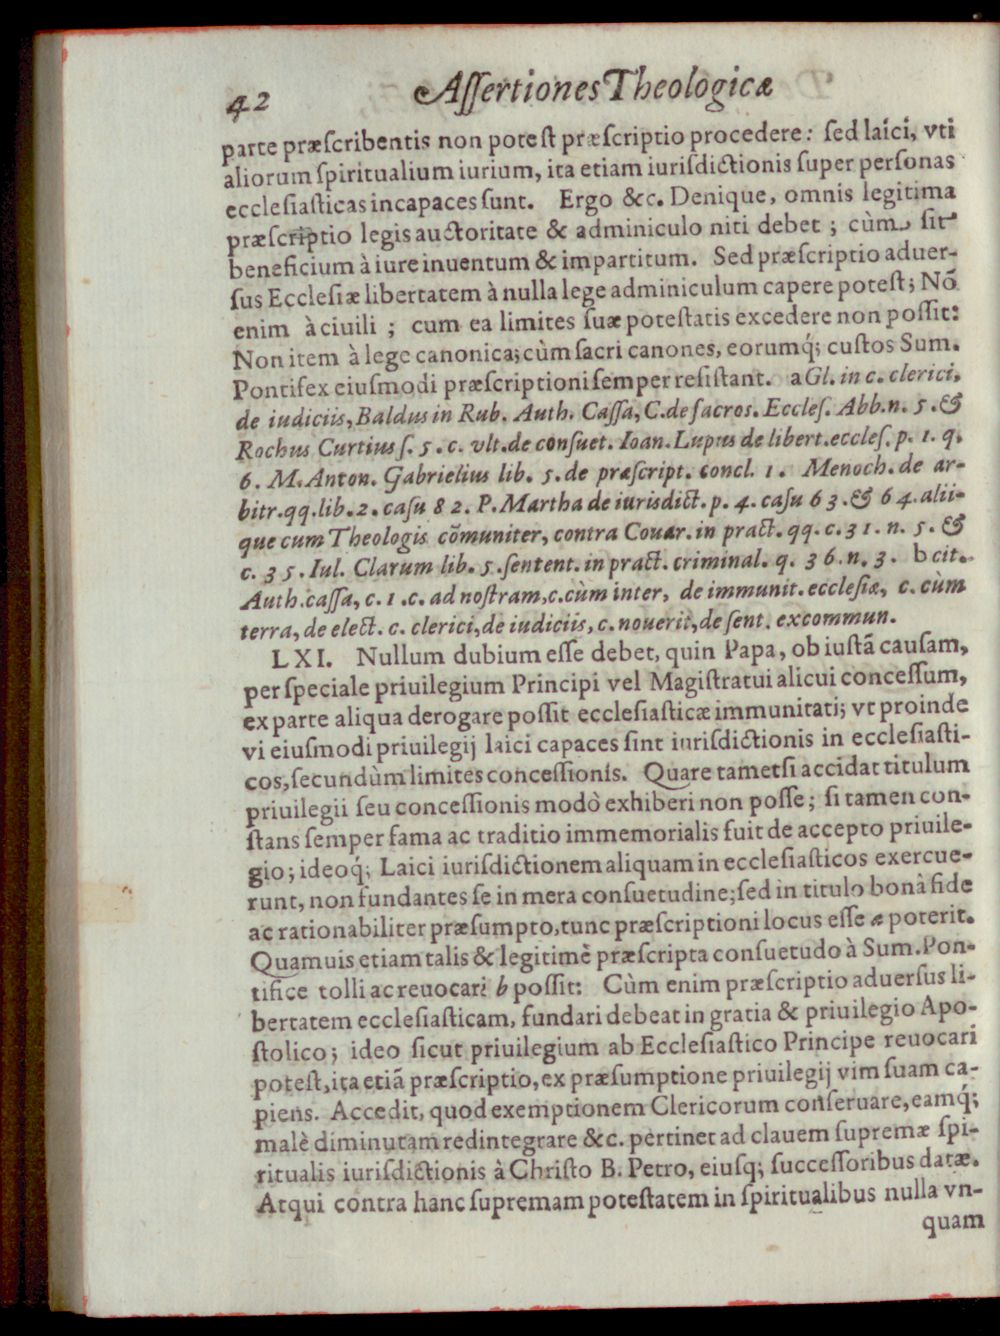 42 Aſſertiones Theologicæ
parte præſcribentis non poteſt præſcriptio procedere: ſed laici, vti
aliorum ſpiritualium iurium, ita etiam iurisdictionis ſuper perſonas
eccleſiaſticas incapaces ſunt. Ergo &c. Denique, omnis legitima
præſcriptio legis auctoritate & adminiculo niti debet; cùm ſit
beneficium à iure inuentum & impartitum. Sed præſcriptio aduer-
ſus Eccleſiæ libertatem à nulla lege adminiculum capere poteſt; Nō
enim à ciuili; cum ea limites ſuæ poteſtatis excedere non poſſit:
Non item à lege canonica; cùm ſacri canones, eorumq́; cuſtos Sum.
Pontifex eiuſmodi præſcriptioni ſemper reſiſtant. a Gl. in c. clerici,
de iudiciis, Baldus in Rub. Auth. Caſſa, C. de ſacros. Eccleſ. Abb. n. 5. &
Rochus Curtius ſ. 5. c. vlt. de conſuet. Ioan. Lupus de libert. eccleſ. p. 1. q.
6. M. Anton. Gabrielius lib. 5. de præſcript. concl. 1. Menoch. de ar-
bitr. qq. lib. 2. caſu 82. P. Martha de iurisdict. p. 4. caſu 63. & 64. alii-
que cum Theologis cōmuniter, contra Couar. in pract. qq. c. 31. n. 5. &
c. 35. Iul. Clarum lib. 5. ſentent. in pract. criminal. q. 36. n. 3. b cit.
Auth. caſſa, c. 1. c. ad noſtram, c. cùm inter, de immunit. eccleſiæ, c. cum
terra, de elect. c. clerici, de iudiciis, c. nouerit, de ſent. excommun.
LXI. Nullum dubium eſſe debet, quin Papa, ob iuſtā cauſam,
per ſpeciale priuilegium Principi vel Magiſtratui alicui conceſſum,
ex parte aliqua derogare poſſit eccleſiaſticæ immunitati; vt proinde
vi eiuſmodi priuilegij laici capaces ſint iurisdictionis in eccleſiaſti-
cos, ſecundùm limites conceſſionis. Quare tametſi accidat titulum
priuilegii ſeu conceſſionis modò exhiberi non poſſe; ſi tamen con-
ſtans ſemper fama ac traditio immemorialis fuit de accepto priuile-
gio; ideoq́; Laici iurisdictionem aliquam in eccleſiaſticos exercue-
runt, non fundantes ſe in mera conſuetudine; ſed in titulo bonâ fide
ac rationabiliter præſumpto, tunc præſcriptioni locus eſſe æ poterit.
Quamuis etiam talis & legitimè præſcripta conſuetudo à Sum. Pon-
tifice tolli ac reuocari b poſſit: Cùm enim præſcriptio aduerſus li-
bertatem eccleſiaſticam, fundari debeat in gratia & priuilegio Apo-
ſtolico; ideo ſicut priuilegium ab Eccleſiaſtico Principe reuocari
poteſt, ita etiā præſcriptio, ex præſumptione priuilegij vim ſuam ca-
piens. Accedit, quod exemptionem Clericorum conſeruare, eamq́;
malè diminutam redintegrare &c. pertinet ad clauem ſupremæ ſpi-
ritualis iurisdictionis à Chriſto B. Petro, eiuſq; ſucceſſoribus datæ.
Atqui contra hanc ſupremam poteſtatem in ſpiritualibus nulla vn-
quam